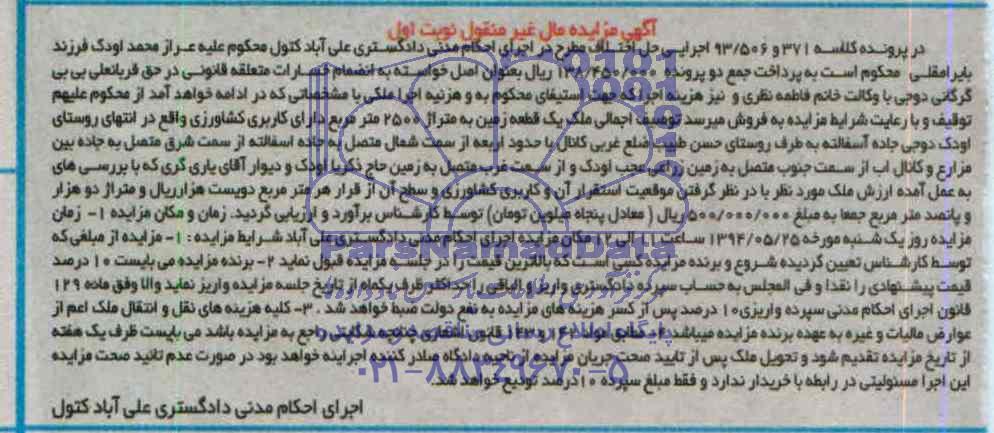 آگهی مزایده مال غیر منقول نوبت اول
در پرونده کلاسه ۳۷۱ و ۹۳/۵۰۶ اجرایی حل اختلاف مطرح در اجرای احکام مدنی دادگستری علی آباد کتول محکوم علیه عراز محمد اودک فرزند
بایرامقلی محکوم است به پرداخت جمع دو پرونده ۱۳۸/۴۵۰/۰۰۰ ریال بعنوان اصل خواسته به انضمام خسارات متعلقه قانونی در حق قربانعلی بی بی
گرگانی دوجی با وکالت خانم فاطمه نظری و نیز هزینه اجرا که جهت استیفای محکوم به و هزنیه اجرا ملکی با مشخصاتی که در ادامه خواهد آمد از محکوم علیهم
توقیف و با رعایت شرایط مزایده به فروش میرسد توصیف اجمالی ملک یک قطعه زمین به متراژ ۲۵۰۰ متر مربع دارای کاربری کشاورزی واقع در انتهای روستای
اودک دوجی جاده آسفالته به طرف روستای حسن طبیب ضلع غربی کانال با حدود اربعه از سمت شمال متصل به جاده اسفالته از سمت شرق متصل به جاده بین
مزارع و کانال اب از سمت جنوب متصل به زمین زراعی محب اودک و از سمت غرب متصل به زمین حاج ذکریا اودک و دیوار آقای یاری گری که با بررسی های
به عمل آمده ارزش ملک مورد نظر با در نظر گرفتن موقعیت استقرار آن و کاربری کشاورزی و سطح آن از قرار هر متر مربع دویست هزارریال و متراژ دو هزار
و پانصد متر مربع جمعا به مبلغ ۵۰۰/۰۰۰/۰۰۰ ریال ( معادل پنجاه میلوین تومان) توسط کارشناس برآورد و ارزیابی گردید. زمان و مکان مزایده ۱- زمان
مزایده روز یک شنبه مورخه ۱۳۹۴/۰۵/۲۵ ساعت ۱۱ الی ۱۲ مکان مزایده اجرای احکام مدنی دادگستری علی آباد شرایط مزایده : ۱- مزایده از مبلغی که
توسط کارشناس تعیین گردیده شروع و برنده مزایده کسی است که بالاترین قیمت را در جلسه مزایده قبول نماید ۲- برنده مزایده می بایست ۱۰ درصد
قیمت پیشنهادی را نقدا و فی المجلس به حساب سپرده دادگستری واریز و الباقی را حداکثر ظرف یکماه از تاریخ جلسه مزایده واریز نماید والا وفق ماده ۱۲۹
قانون اجرای احکام مدنی سپرده واریزی ۱۰ درصد پس از کسر هزینه های مزایده به نفع دولت ضبط خواهد شد . ۳- کلیه هزینه های نقل و انتقال ملک اعم از
عوارض مالیات و غیره به عهده برنده مزایده میباشد ۴- مطابق مواد ۱۴۲ و ۱۴۳ قانون چنانچه شکایتی راجع به مزایده باشد می بایست ظرف یک هفته
از تاریخ مزایده تقدیم شود و تحویل ملک پس از تایید صحت جریان مزایده از ناحیه دادگاه صادر کننده اجراینه خواهد بود در صورت عدم تائید صحت مزایده
این اجرا مسئولیتی در رابطه با خریدار ندارد و فقط مبلغ سپرده ۱۰ درصد تودیع خواهد شد.
اجرای احکام مدنی دادگستری علی آباد کتول
ParsNamadData
۰۲۱-۸۸۳۴۹۶۷۰-۵